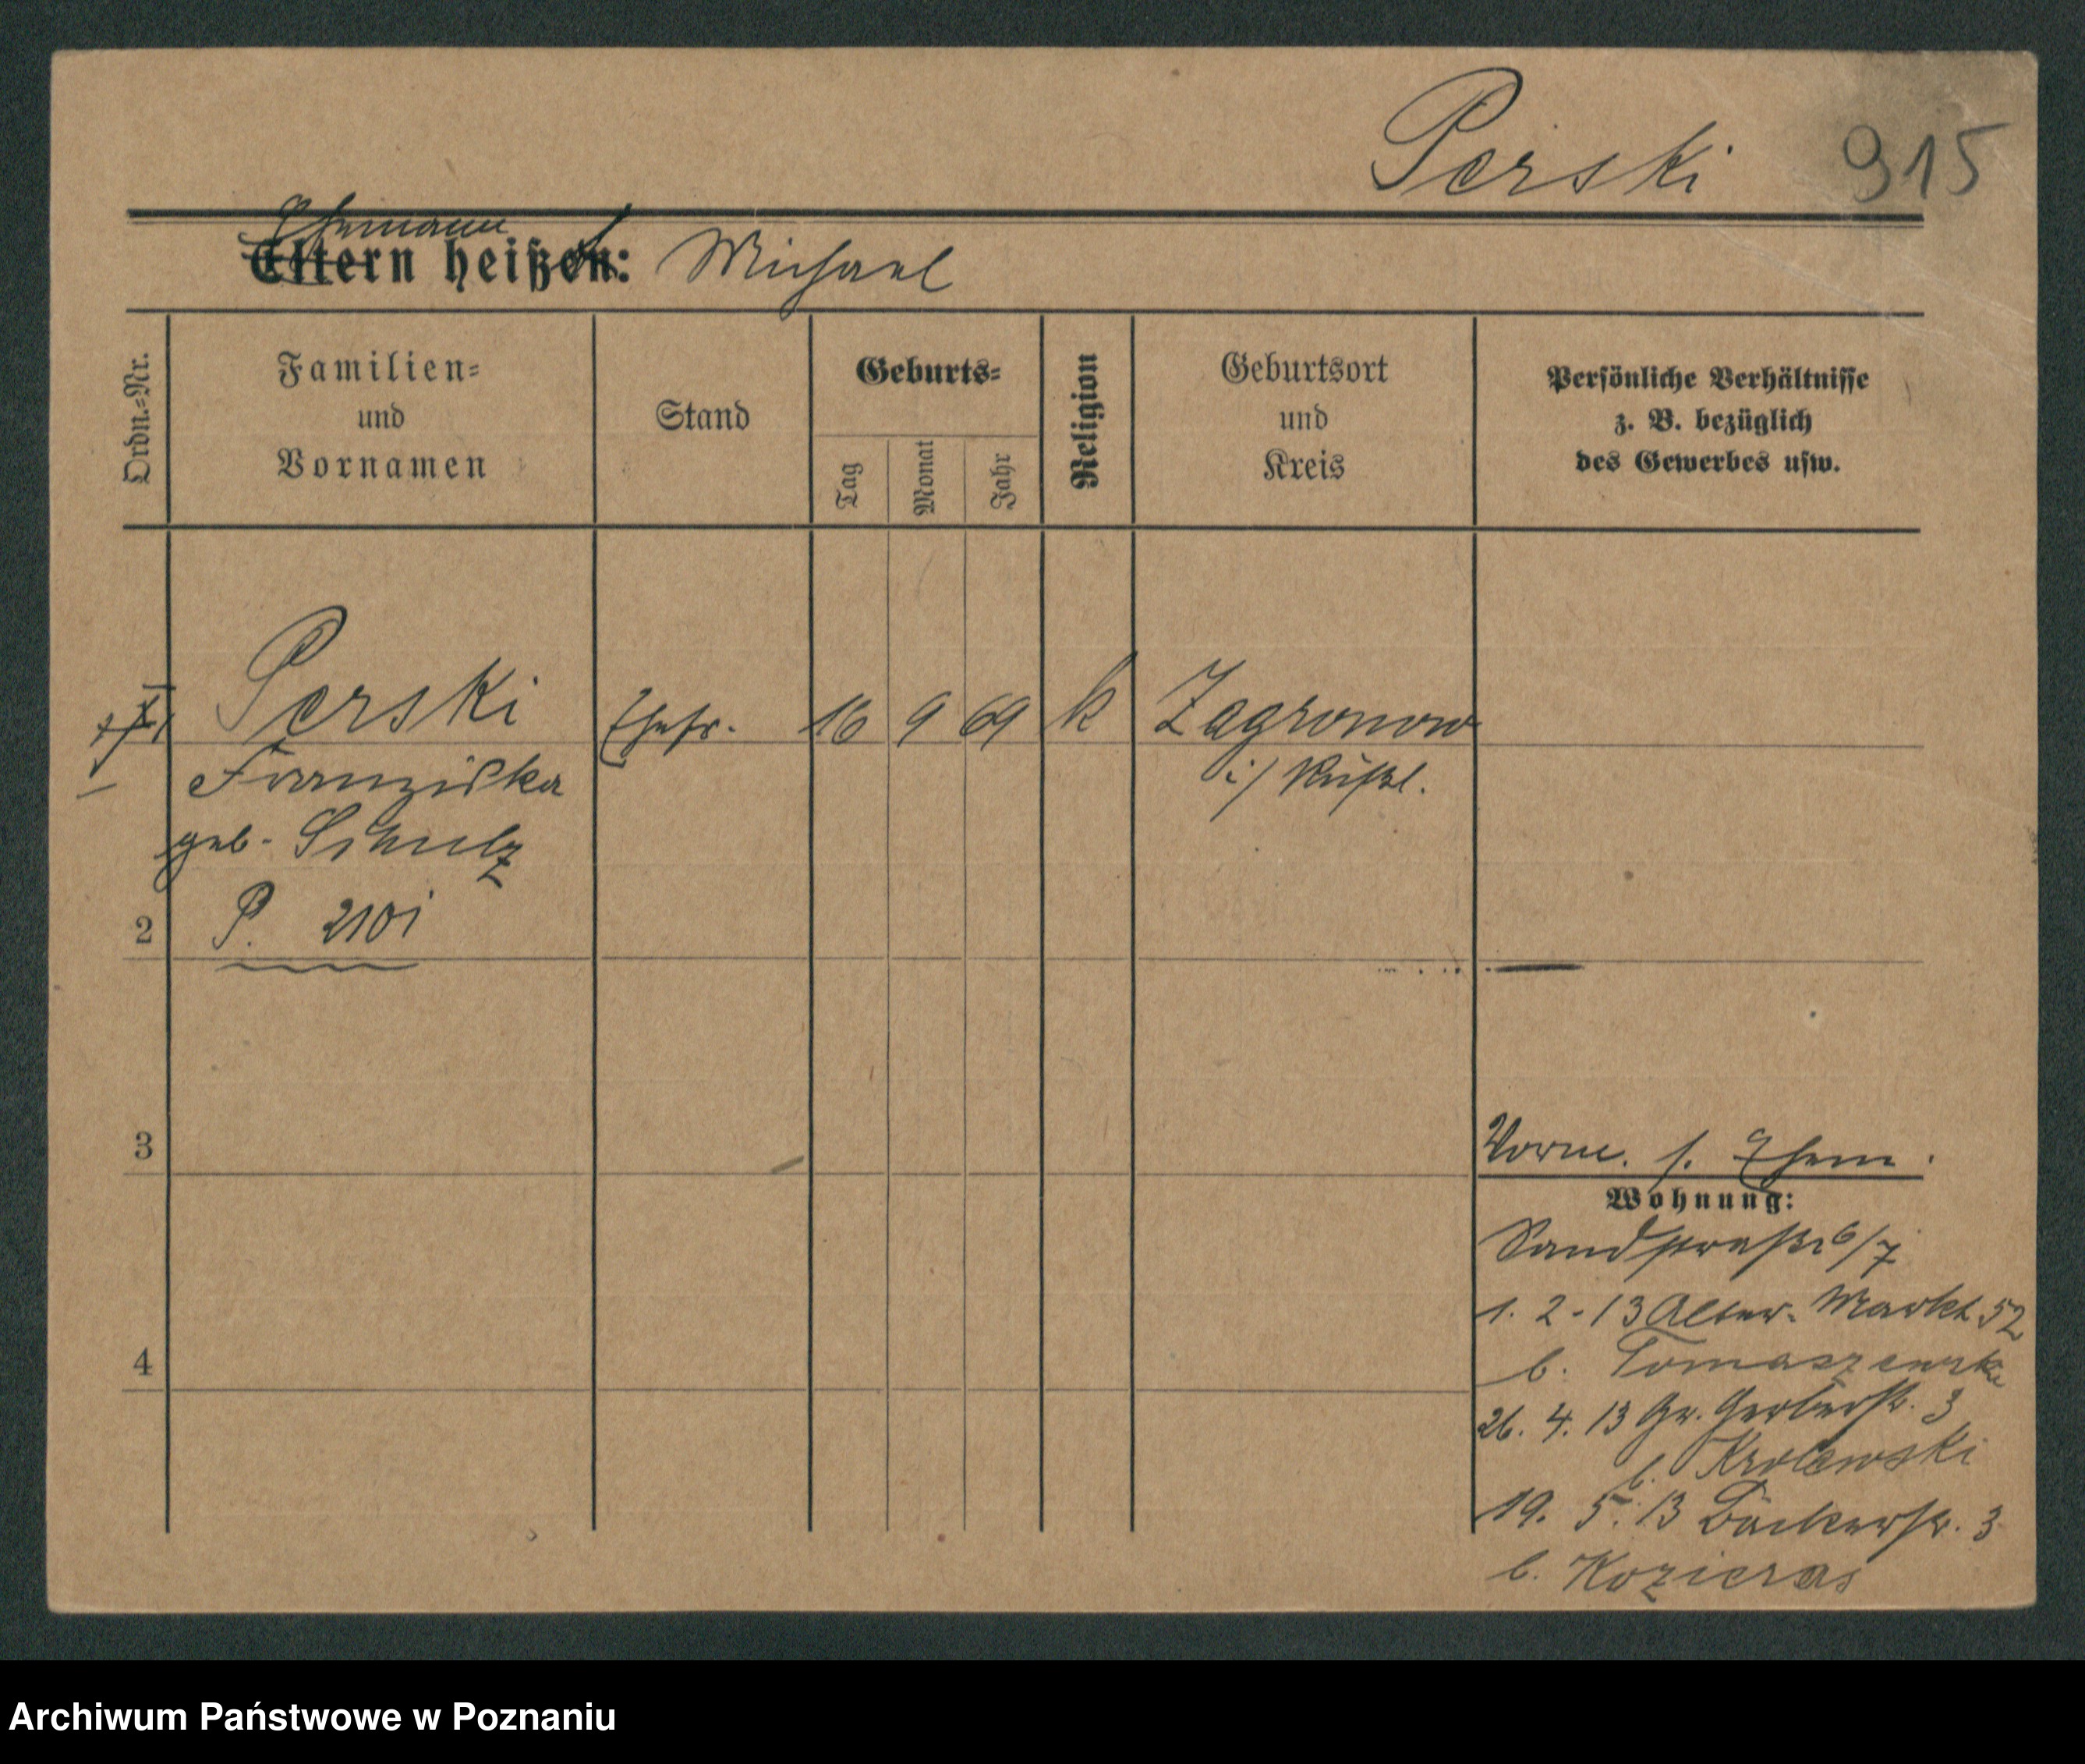 Perski 915
Ehemann
Eltern heißen: Michael
Ordn.-Nr.
Familien-
und
Vornamen
Stand
Geburts-
Tag
Monat
Jahr
Religion
Geburtsort
und
Kreis
Persönliche Verhältnisse
z. B. bezüglich
des Gewerbes usw.
Perski Ehefr. 16 9 69 k Zagronow
Franziska i/ Rußl.
geb. Schulz
2 P. 2101
3
Vorm. s. Ehem.
Wohnung:
Sandstraße 6/7
1. 2. 13 Alter Markt 52
4
b. Tomaszewska
26. 4. 13 Gr. Gerberstr. 3
b. Krolewski
19. 5. 13 Bäckerstr. 3
b. Kozieras
Archiwum Państwowe w Poznaniu